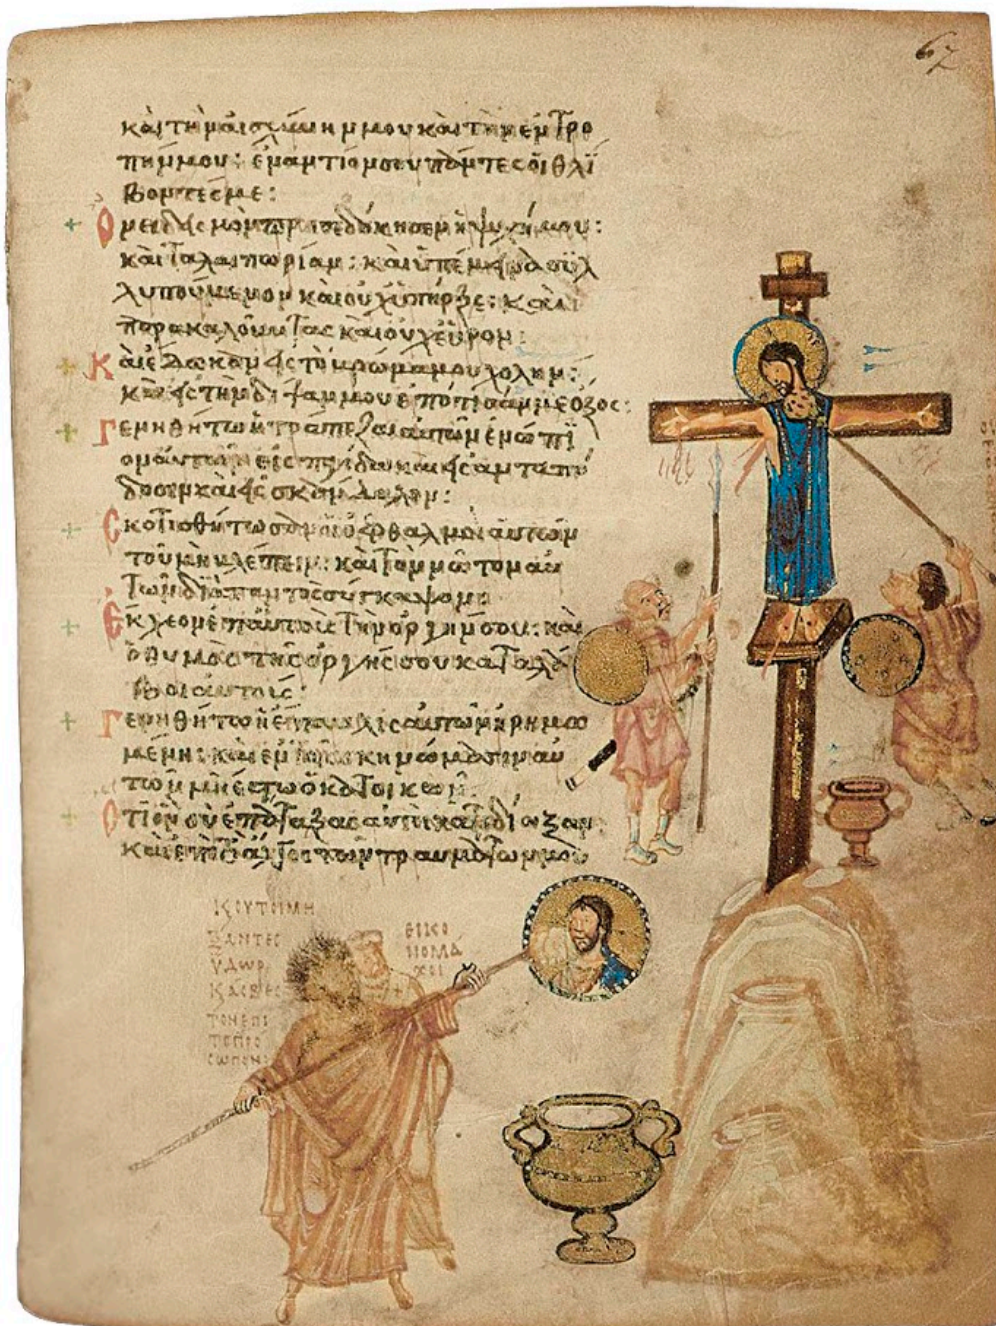 67
καὶ τὴν αἰσχύνην μου καὶ τὴν ἐντρο
πήν μου: ἐναντίον σου πάντες οἱ θλί
βοντές με:
Ὀνειδισμὸν προσεδόκησεν ἡ ψυχή μου:
καὶ ταλαιπωρίαν: καὶ ὑπέμεινα συλ
λυπούμενον καὶ οὐχ ὑπῆρξε: καὶ
παρακαλοῦντας καὶ οὐχ εὗρον:
Καὶ ἔδωκαν εἰς τὸ βρῶμά μου χολήν:
καὶ εἰς τὴν δίψαν μου ἐπότισάν με ὄξος:
Γενηθήτω ἡ τράπεζα αὐτῶν ἐνώπι
ον αὐτῶν εἰς παγίδα καὶ εἰς ἀνταπό
δοσιν καὶ εἰς σκάνδαλον:
Σκοτισθήτωσαν οἱ ὀφθαλμοὶ αὐτῶν
τοῦ μὴ βλέπειν: καὶ τὸν νῶτον αὐ
τῶν διὰ παντὸς σύγκαψον
Ἔκχεον ἐπ' αὐτοὺς τὴν ὀργήν σου: καὶ
ὁ θυμὸς τῆς ὀργῆς σου καταλά
βοι αὐτούς:
Γενηθήτω ἡ ἔπαυλις αὐτῶν ἠρημω
μένη: καὶ ἐν τοῖς σκηνώμασιν αὐ
τῶν μὴ ἔστω ὁ κατοικῶν:
Ὅτι ὃν σὺ ἐπάταξας αὐτοὶ κατεδίωξαν
καὶ ἐπὶ τὸ ἄλγος τῶν τραυμάτων μου
Κ ΟΥΤΟΙ ΜΗ
ΞΑΝΤΕΣ
ΥΔΩΡ
Κ ΑΣΒΕΣ
ΤΟΝ ΕΠΙ
ΤΟ ΠΡΟ
ΣΩΠΟΝ
ΕΙΚΟ
ΝΟΜΑ
ΧΟΙ